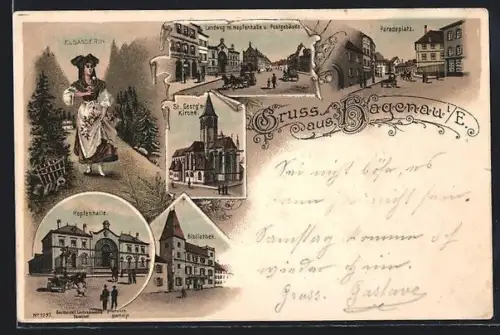 ELSÄSSERIN.
Landweg m. Hopfenhalle u. Postgebäude.
Paradeplatz.
St. Georg's
Kirche.
Gruss
aus Hagenau i/E.
Hopfenhalle.
Bibliothek.
Sei nicht böse, es
kann ja nicht sein.
Samstag komme ich
wieder heim.
Gruss. Gustave